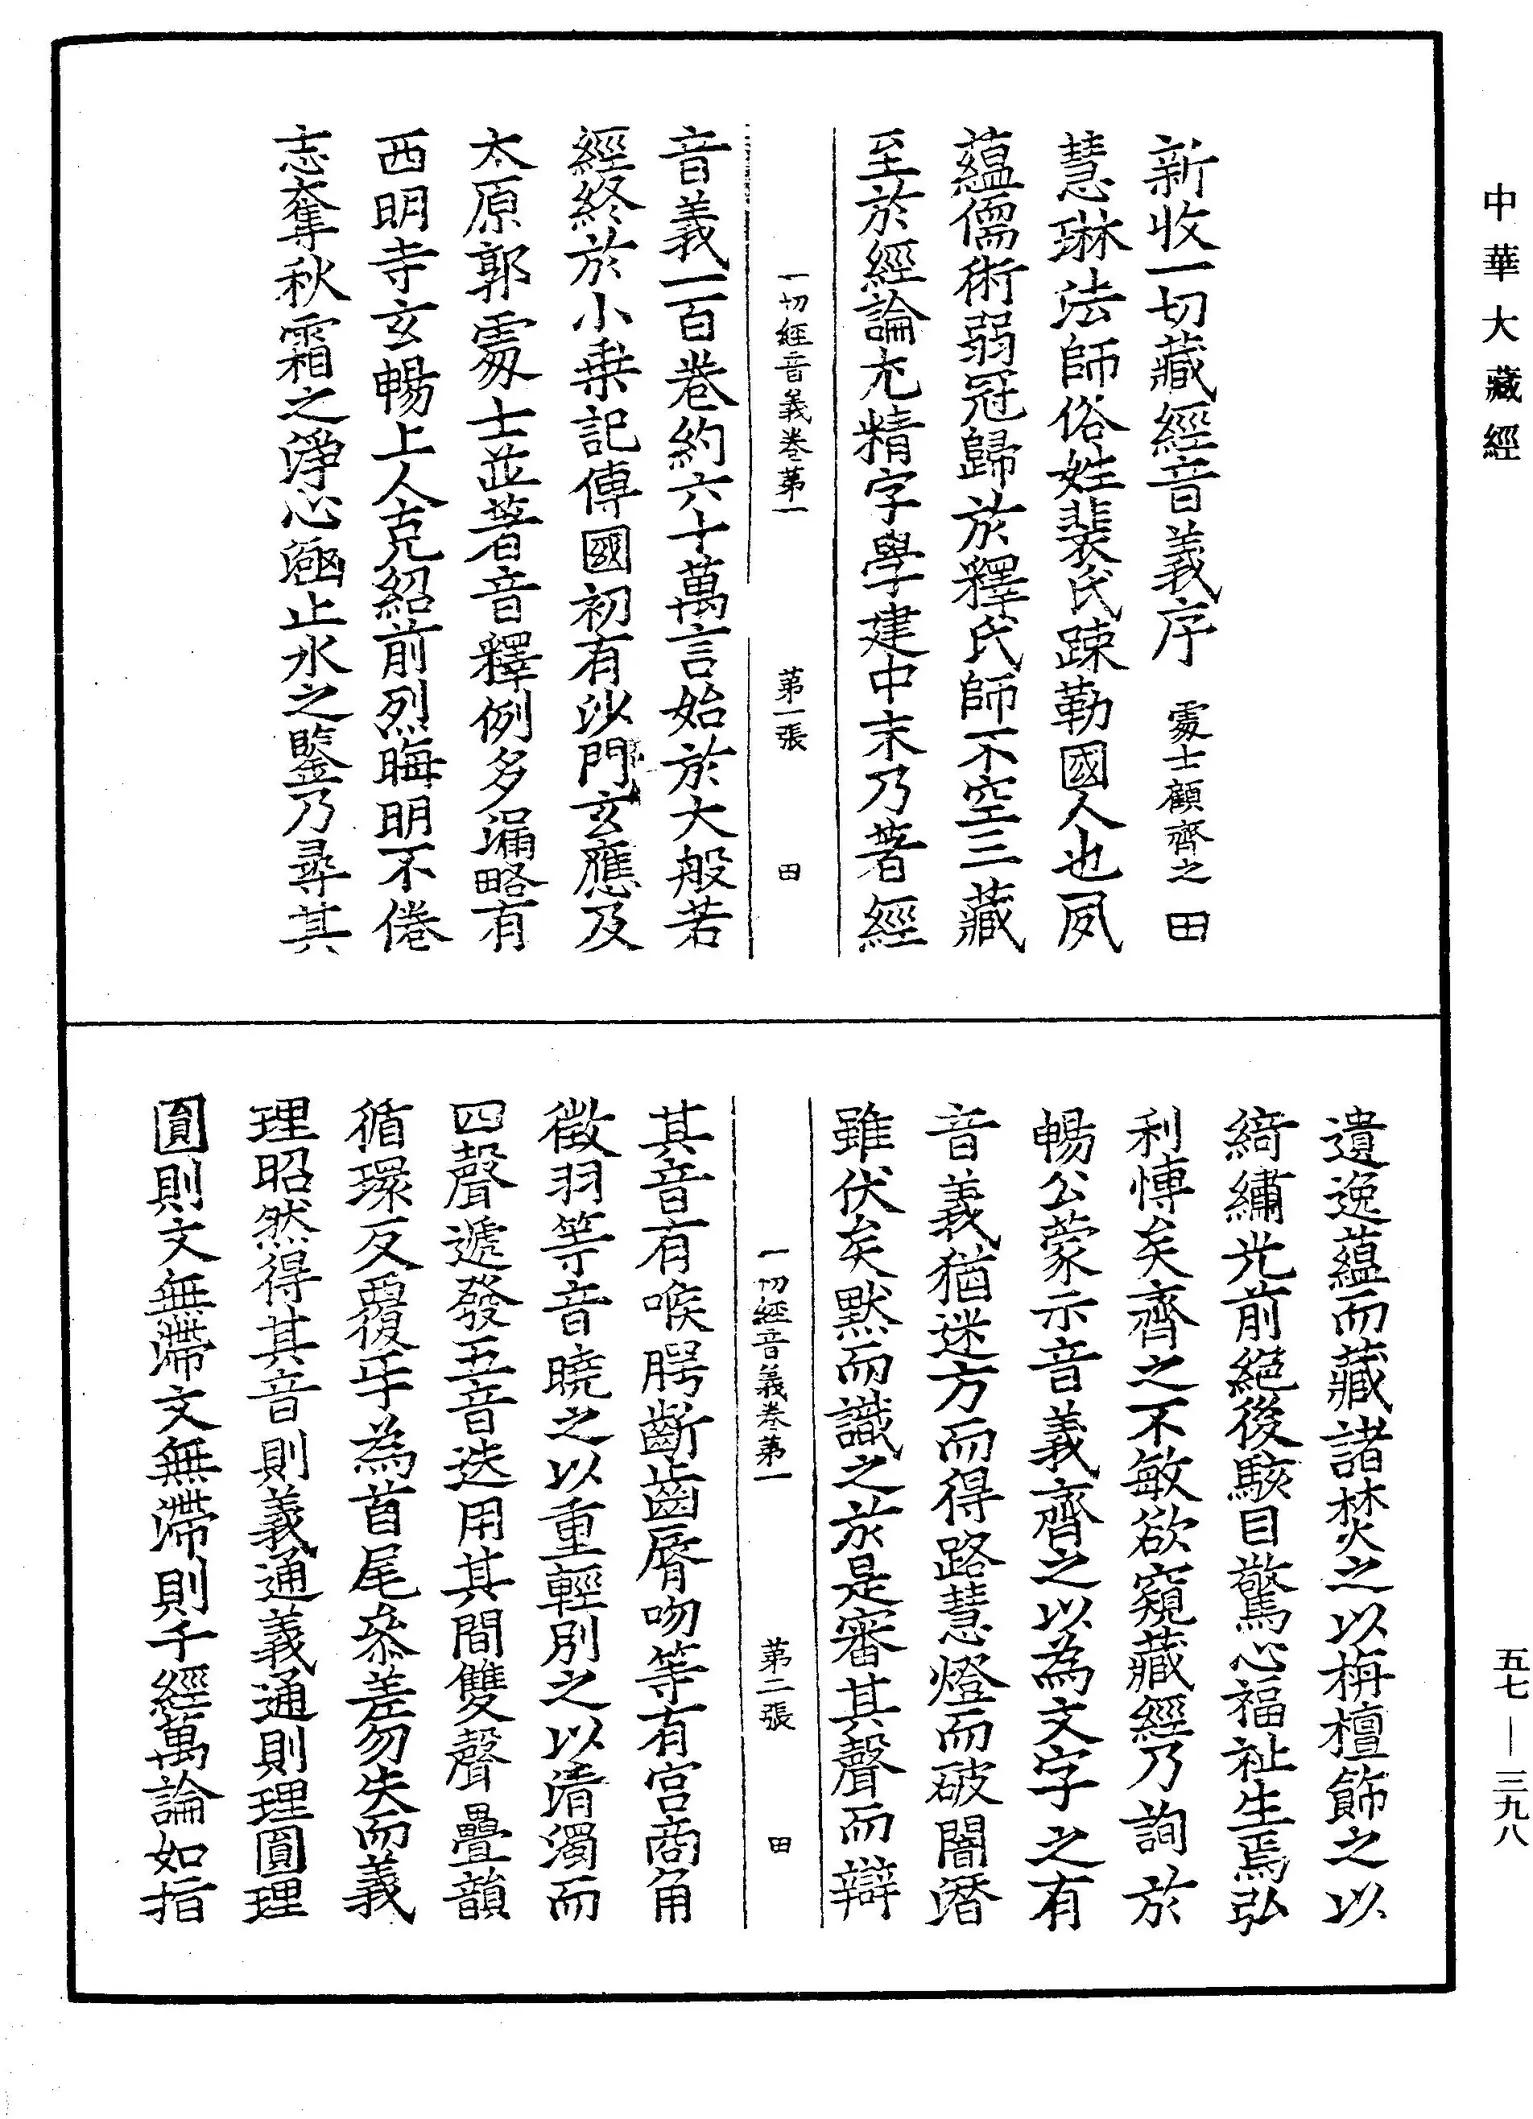 中華大藏經
新收一切藏經音義序 處士顧齊之 田
慧琳法師俗姓裴氏踈勒國人也夙
蘊儒術弱冠歸於釋氏師不空三藏
至於經論尤精字學建中末乃著經
一切經音義卷第一 第一張 田
音義一百卷約六十萬言始於大般若
經終於小乗記傳國初有沙門玄應及
太原郭處士並著音釋例多漏略有
西明寺玄暢上人克紹前烈晦明不倦
志奪秋霜之淨心涵止水之鑒乃尋其
遺逸蘊而藏諸焚之以栴檀飾之以
綺繡光前絕後駭目驚心福祉生焉弘
利博矣齊之不敏欲窺藏經乃詢於
暢公蒙示音義齊之以為文字之有
音義猶迷方而得路慧燈而破闇潛
雖伏矣默而識之於是審其聲而辯
一切經音義卷第一 第二張 田
其音有喉腭齗齒脣吻等有宮商角
徵羽等音曉之以重輕別之以清濁而
四聲遞發五音迭用其間雙聲疊韻
循環反覆㸦為首尾叅差勿失而義
理昭然得其音則義通義通則理圓理
圓則文無滯文無滯則千經萬論如指
五七—三九八